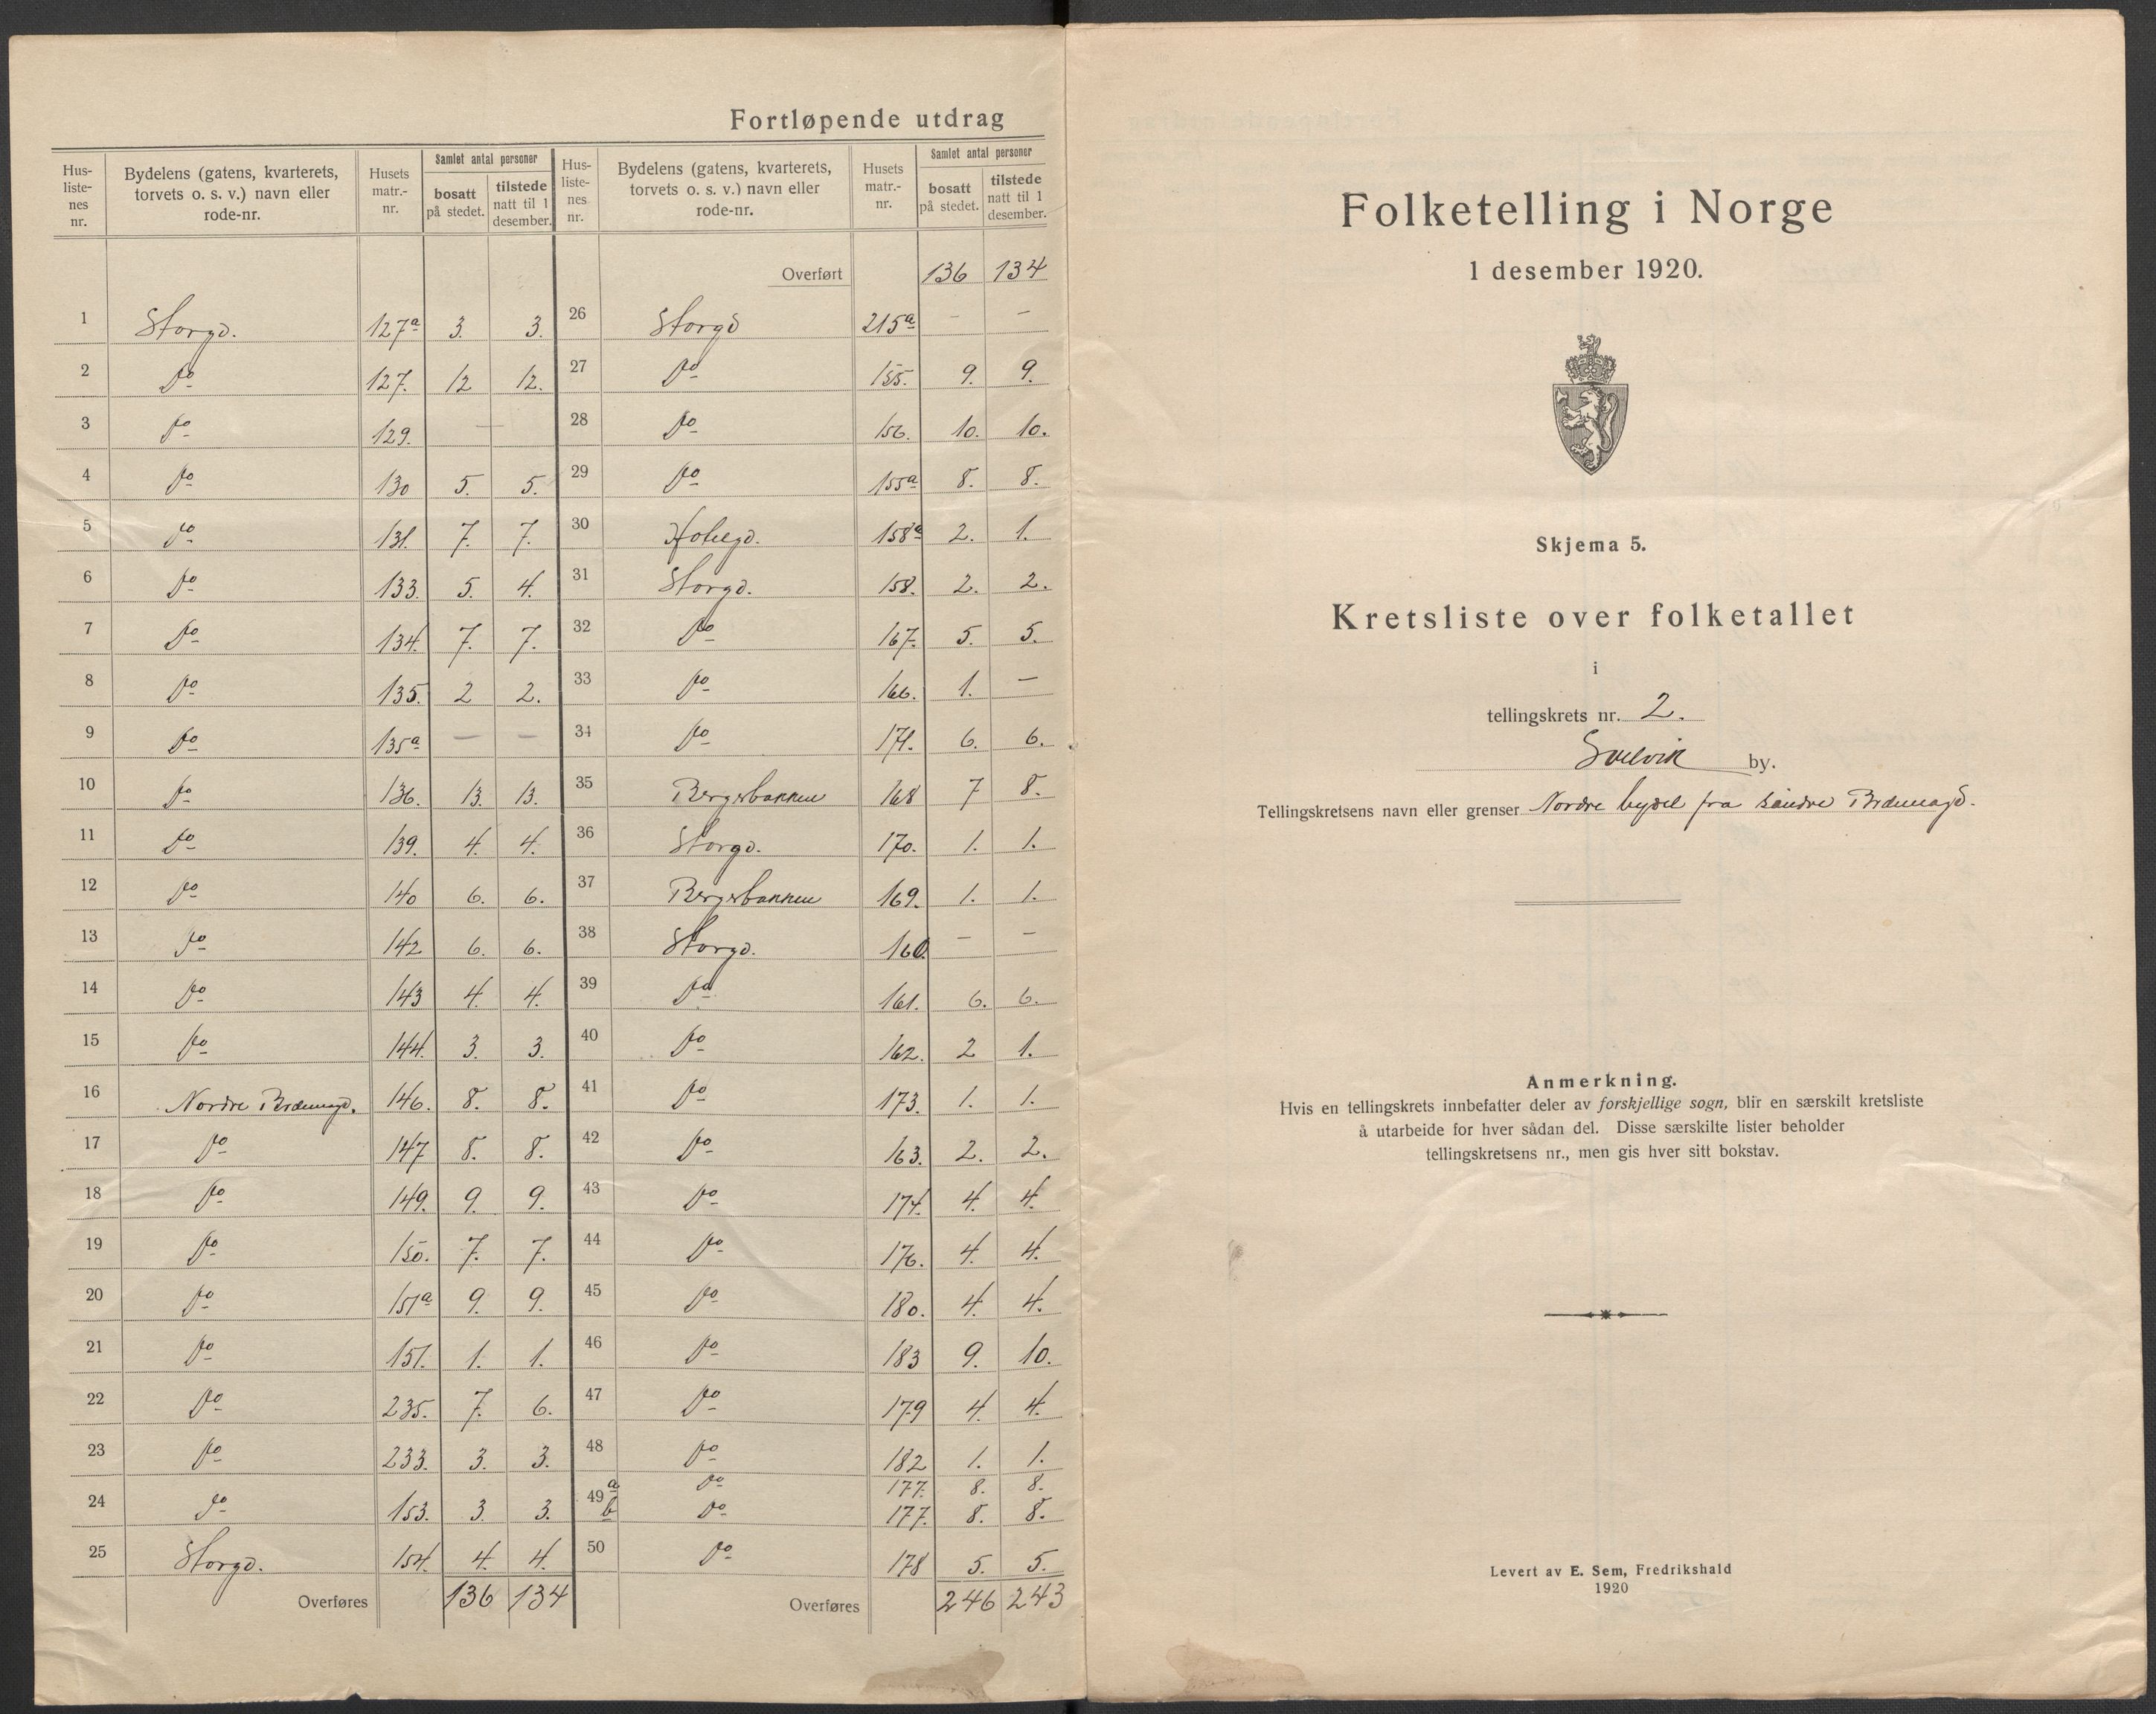 Fortløpende utdrag
Hus-
liste-
nes
nr.
Bydelens (gatens, kvarterets,
torvets o. s. v.) navn eller
rode-nr.
Husets
matr.-
nr.
Samlet antal personer
bosatt
på stedet.
tilstede
natt til 1
desember.
1 Storgd. 127a 3. 3.
2 Do 127. 12 12.
3 Do 129. —
4 Do 130 5. 5.
5 Do 131. 7. 7.
6 Do 133. 5. 4.
7 Do 134. 7. 7.
8 Do 135. 2 2.
9 Do 135a — —
10 Do 136. 13. 13.
11 Do 139. 4. 4.
12 Do 140 6. 6.
13 Do 142 6. 6.
14 Do 143 4. 4.
15 Do 144. 3. 3.
16 Nordre 146. 8. 8.
17 Do 147 8. 8.
18 Do 149. 9. 9.
19 Do 150. 7. 7.
20 Do 151a 9. 9.
21 Do 151. 1. 1.
22 Do 235. 7. 6.
23 Do 233. 3. 3.
24 Do 153. 3. 3.
25 Storgd. 154. 4. 4.
Overføres 136 134
Hus-
liste-
nes
nr.
Bydelens (gatens, kvarterets,
torvets o. s. v.) navn eller
rode-nr.
Husets
matr.-
nr.
Samlet antal personer
bosatt
på stedet.
tilstede
natt til 1
desember.
Overført 136 134
26 Storgd 215a — —
27 Do 155. 9. 9.
28 Do 156. 10. 10.
29 Do 155a 8. 8.
30 158a 2. 1.
31 Storgd. 158. 2. 2.
32 Do 167. 5. 5.
33 Do 166. 1. —
34 Do 171. 6. 6.
35 Bergsbakken 168 7 8.
36 Storgd. 170. 1. 1.
37 Bergsbakken 169. 1. 1.
38 Storgd. 160. — —
39 Do 161. 6. 6.
40 Do 162. 2 1.
41 Do 173. 1. 1.
42 Do 163. 2. 2.
43 Do 174. 4. 4.
44 Do 176. 4. 4.
45 Do 180. 4. 4.
46 Do 183 9. 10.
47 Do 179 4. 4.
48 Do 182 1. 1.
49 a Do 177. 8. 8.
b Do 177. 8. 8.
50 Do 178 5. 5.
Overføres 246 243
Folketelling i Norge
1 desember 1920.
Skjema 5.
Kretsliste over folketallet
i
tellingskrets nr. 2.
Svelvik by.
Tellingskretsens navn eller grenser Nordre bydel fra søndre
Anmerkning.
Hvis en tellingskrets innbefatter deler av forskjellige sogn, blir en særskilt kretsliste
å utarbeide for hver sådan del. Disse særskilte lister beholder
tellingskretsens nr., men gis hver sitt bokstav.
Levert av E. Sem, Fredrikshald
1920